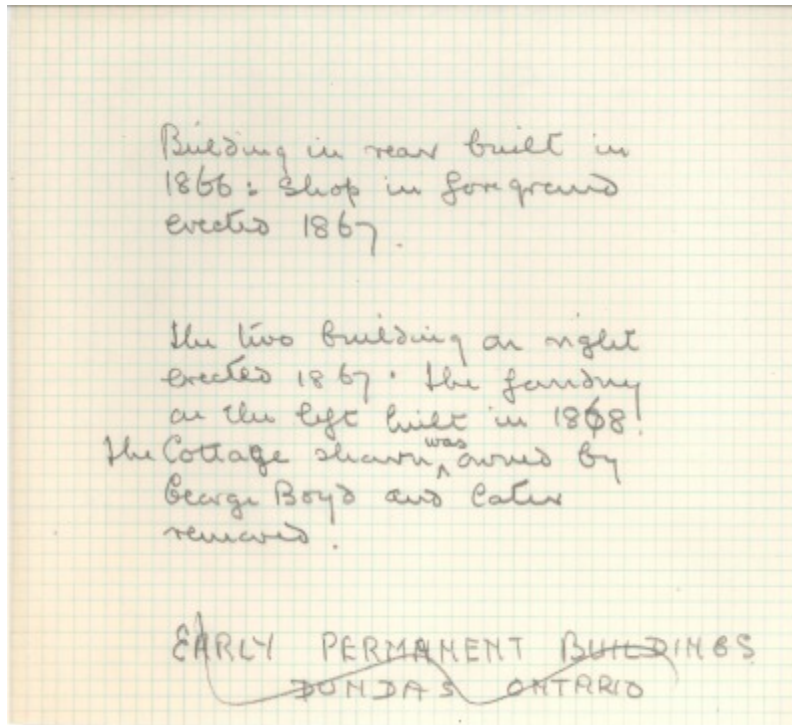 Building in rear built in
1866: Shop in foreground
erected 1867.
the two building on right
erected 1867. the foundry
on the left built in 1868.
the Cottage shown was owned by
George Boyd and later
removed.
EARLY PERMANENT BUILDINGS
DUNDAS ONTARIO